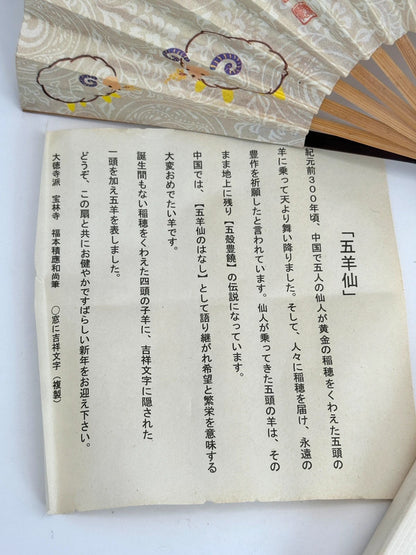 「五羊仙」
紀元前３００年頃、中国で五人の仙人が黄金の稲穂をくわえた五頭の
羊に乗って天より舞い降りました。そして、人々に稲穂を届け、永遠の
豊作を祈願したと言われています。仙人が乗ってきた五頭の羊は、その
まま地上に残り【五殻豊饒】の伝説になっています。
中国では、【五羊仙のはなし】として語り継がれ希望と繁栄を意味する
大変おめでたい羊です。
誕生間もない稲穂をくわえた四頭の子羊に、吉祥文字に隠された
一頭を加え五羊を表しました。
どうぞ、この扇と共にお健やかですばらしい新年をお迎え下さい。
大徳寺派　宝林寺　福本積應和尚筆　○窓に吉祥文字（複製）